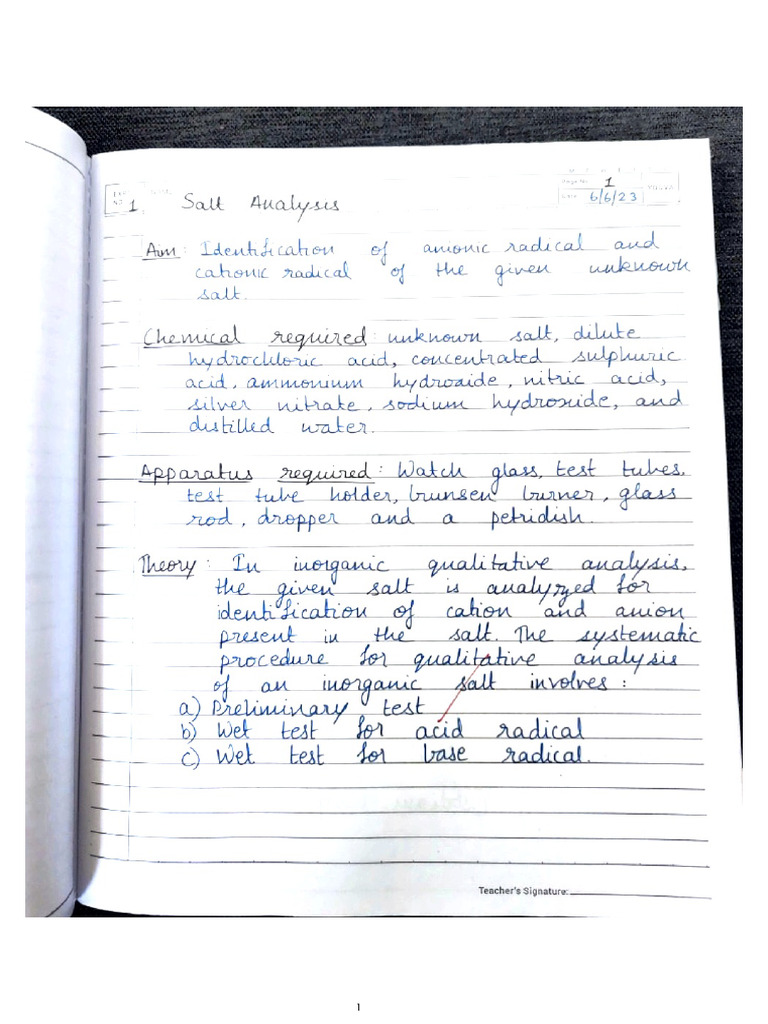 1
6/6/23
1. Salt Analysis
Aim: Identification of anionic radical and
cationic radical of the given unknown
salt.
Chemical required: unknown salt, dilute
hydrochloric acid, concentrated sulphuric
acid, ammonium hydroxide, nitric acid,
silver nitrate, sodium hydroxide, and
distilled water.
Apparatus required: Watch glass, test tubes,
test tube holder, brunsen burner, glass
rod, dropper and a petridish.
Theory: In inorganic qualitative analysis,
the given salt is analyzed for
identification of cation and anion
present in the salt. The systematic
procedure for qualitative analysis
of an inorganic salt involves:
a) Preliminary test
b) Wet test for acid radical
c) Wet test for base radical.
Teacher's Signature:
1